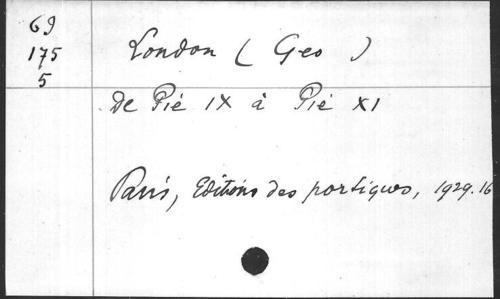 69
175
5
London ( Geo )
De Pie IX à Pie XI
Paris, Editions des portiques, 1929. 16